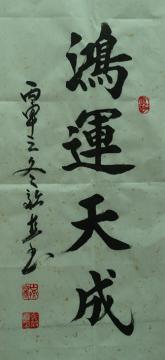 鴻運天成
丙申之冬
書